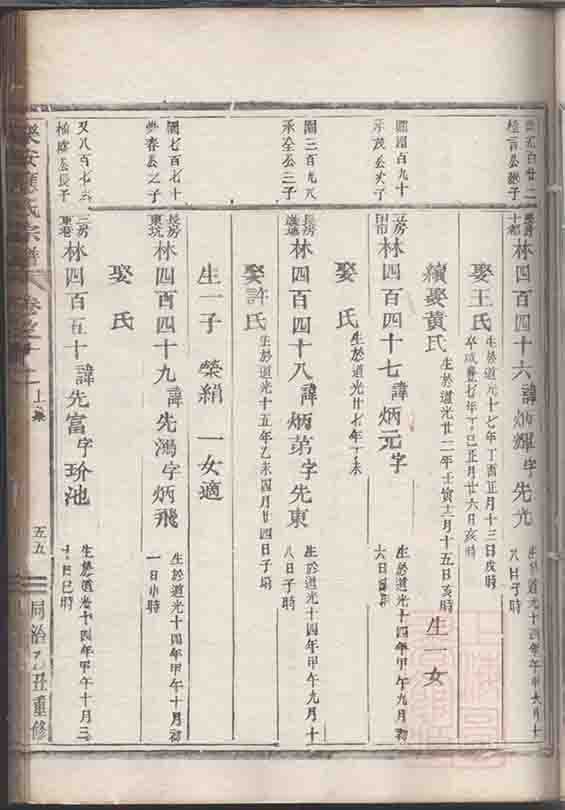 長房
十都
林四百四十六諱炳耀字先光
生於道光十四年甲午六月十
八日子時
娶王氏
生於道光十七年丁酉正月十三日戌時
卒咸豐七年丁巳正月廿六日亥時
續娶黃氏
生於道光廿二年壬寅十二月十五日亥時
生一女
林四百四十七諱炳元字
生於道光十四年甲午九月初
六日
娶 氏
生於道光廿七年丁未
長房
林四百四十八諱炳弟字先東
生於道光十四年甲午九月十
八日子時
娶許氏
生於道光十五年乙未四月廿四日子時
生一子 榮絹 一女適
長房
東坑
林四百四十九諱先鴻字炳飛
生於道光十四年甲午十月初
一日 時
娶 氏
三房
東巷
林四百五十諱先富字玠池
生於道光十四年甲午十月三
十日巳時
圖三百九八
承全公三子
圖七百七十
又八百七十六
樂安應氏宗譜
卷之十二
上集
五五
同治乙丑重修